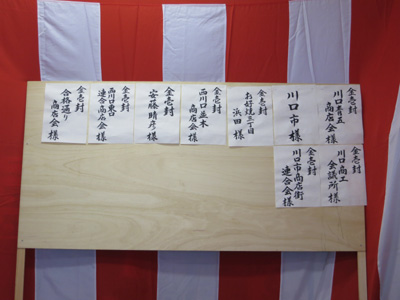 金壱封
川口
商店会様
金壱封
川口市様
金壱封
お好焼三丁目
浜田様
金壱封
西川口並木
商店会様
金壱封
安藤晴彦様
金壱封
西川口東口
連合商店会様
金壱封
合格通り
商店会様
金壱封
川口商工
会議所様
金壱封
川口市商店街
連合会様